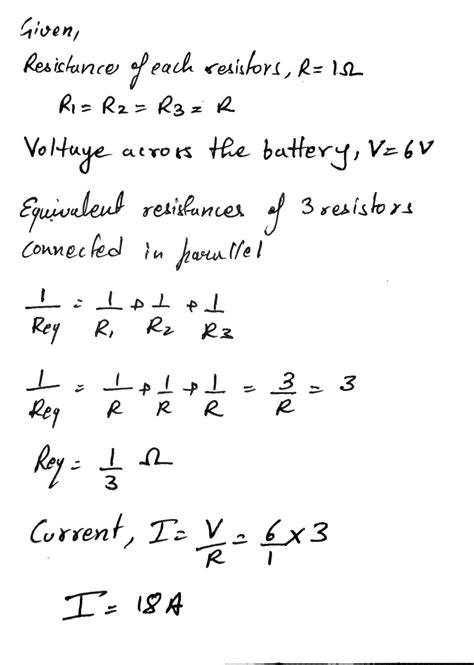 Given,
Resistance of each resistors, R = 1Ω
R1 = R2 = R3 = R
Voltage across the battery, V = 6V
Equivalent resistances of 3 resistors
connected in parallel
1/Req = 1/R1 + 1/R2 + 1/R3
1/Req = 1/R + 1/R + 1/R = 3/R = 3
Req = 1/3 Ω
Current, I = V/R = 6/1 × 3
I = 18A